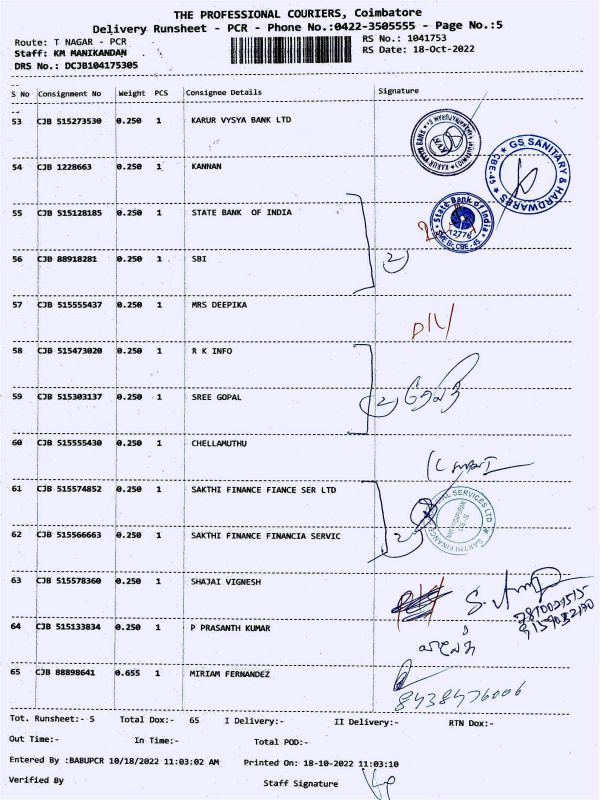 THE PROFESSIONAL COURIERS, Coimbatore
Delivery Runsheet - PCR - Phone No.:0422-3505555 - Page No.:5
Route: T NAGAR - PCR RS No.: 1041753
Staff: KM MANIKANDAN RS Date: 18-Oct-2022
DRS No.: DCJB104175305
S No Consignment No Weight PCS Consignee Details Signature
53 CJB 515273530 0.250 1 KARUR VYSYA BANK LTD
54 CJB 1228663 0.250 1 KANNAN
GS SANITARY & HARDWARES
CBE-45
55 CJB 515128185 0.250 1 STATE BANK OF INDIA
State Bank of India
12776
56 CJB 88918281 0.250 1 SBI
2
57 CJB 515555437 0.250 1 MRS DEEPIKA
58 CJB 515473020 0.250 1 R K INFO
59 CJB 515303137 0.250 1 SREE GOPAL
2
60 CJB 515555430 0.250 1 CHELLAMUTHU
61 CJB 515574852 0.250 1 SAKTHI FINANCE FIANCE SER LTD
62 CJB 515566663 0.250 1 SAKTHI FINANCE FINANCIA SERVIC
2
63 CJB 515578360 0.250 1 SHAJAI VIGNESH
64 CJB 515133834 0.250 1 P PRASANTH KUMAR
65 CJB 88898641 0.655 1 MIRIAM FERNANDEZ
8438476006
Tot. Runsheet:- 5 Total Dox:- 65 I Delivery:- II Delivery:- RTN Dox:-
Out Time:- In Time:- Total POD:-
Entered By :BABUPCR 10/18/2022 11:03:02 AM Printed On: 18-10-2022 11:03:10
Verified By Staff Signature